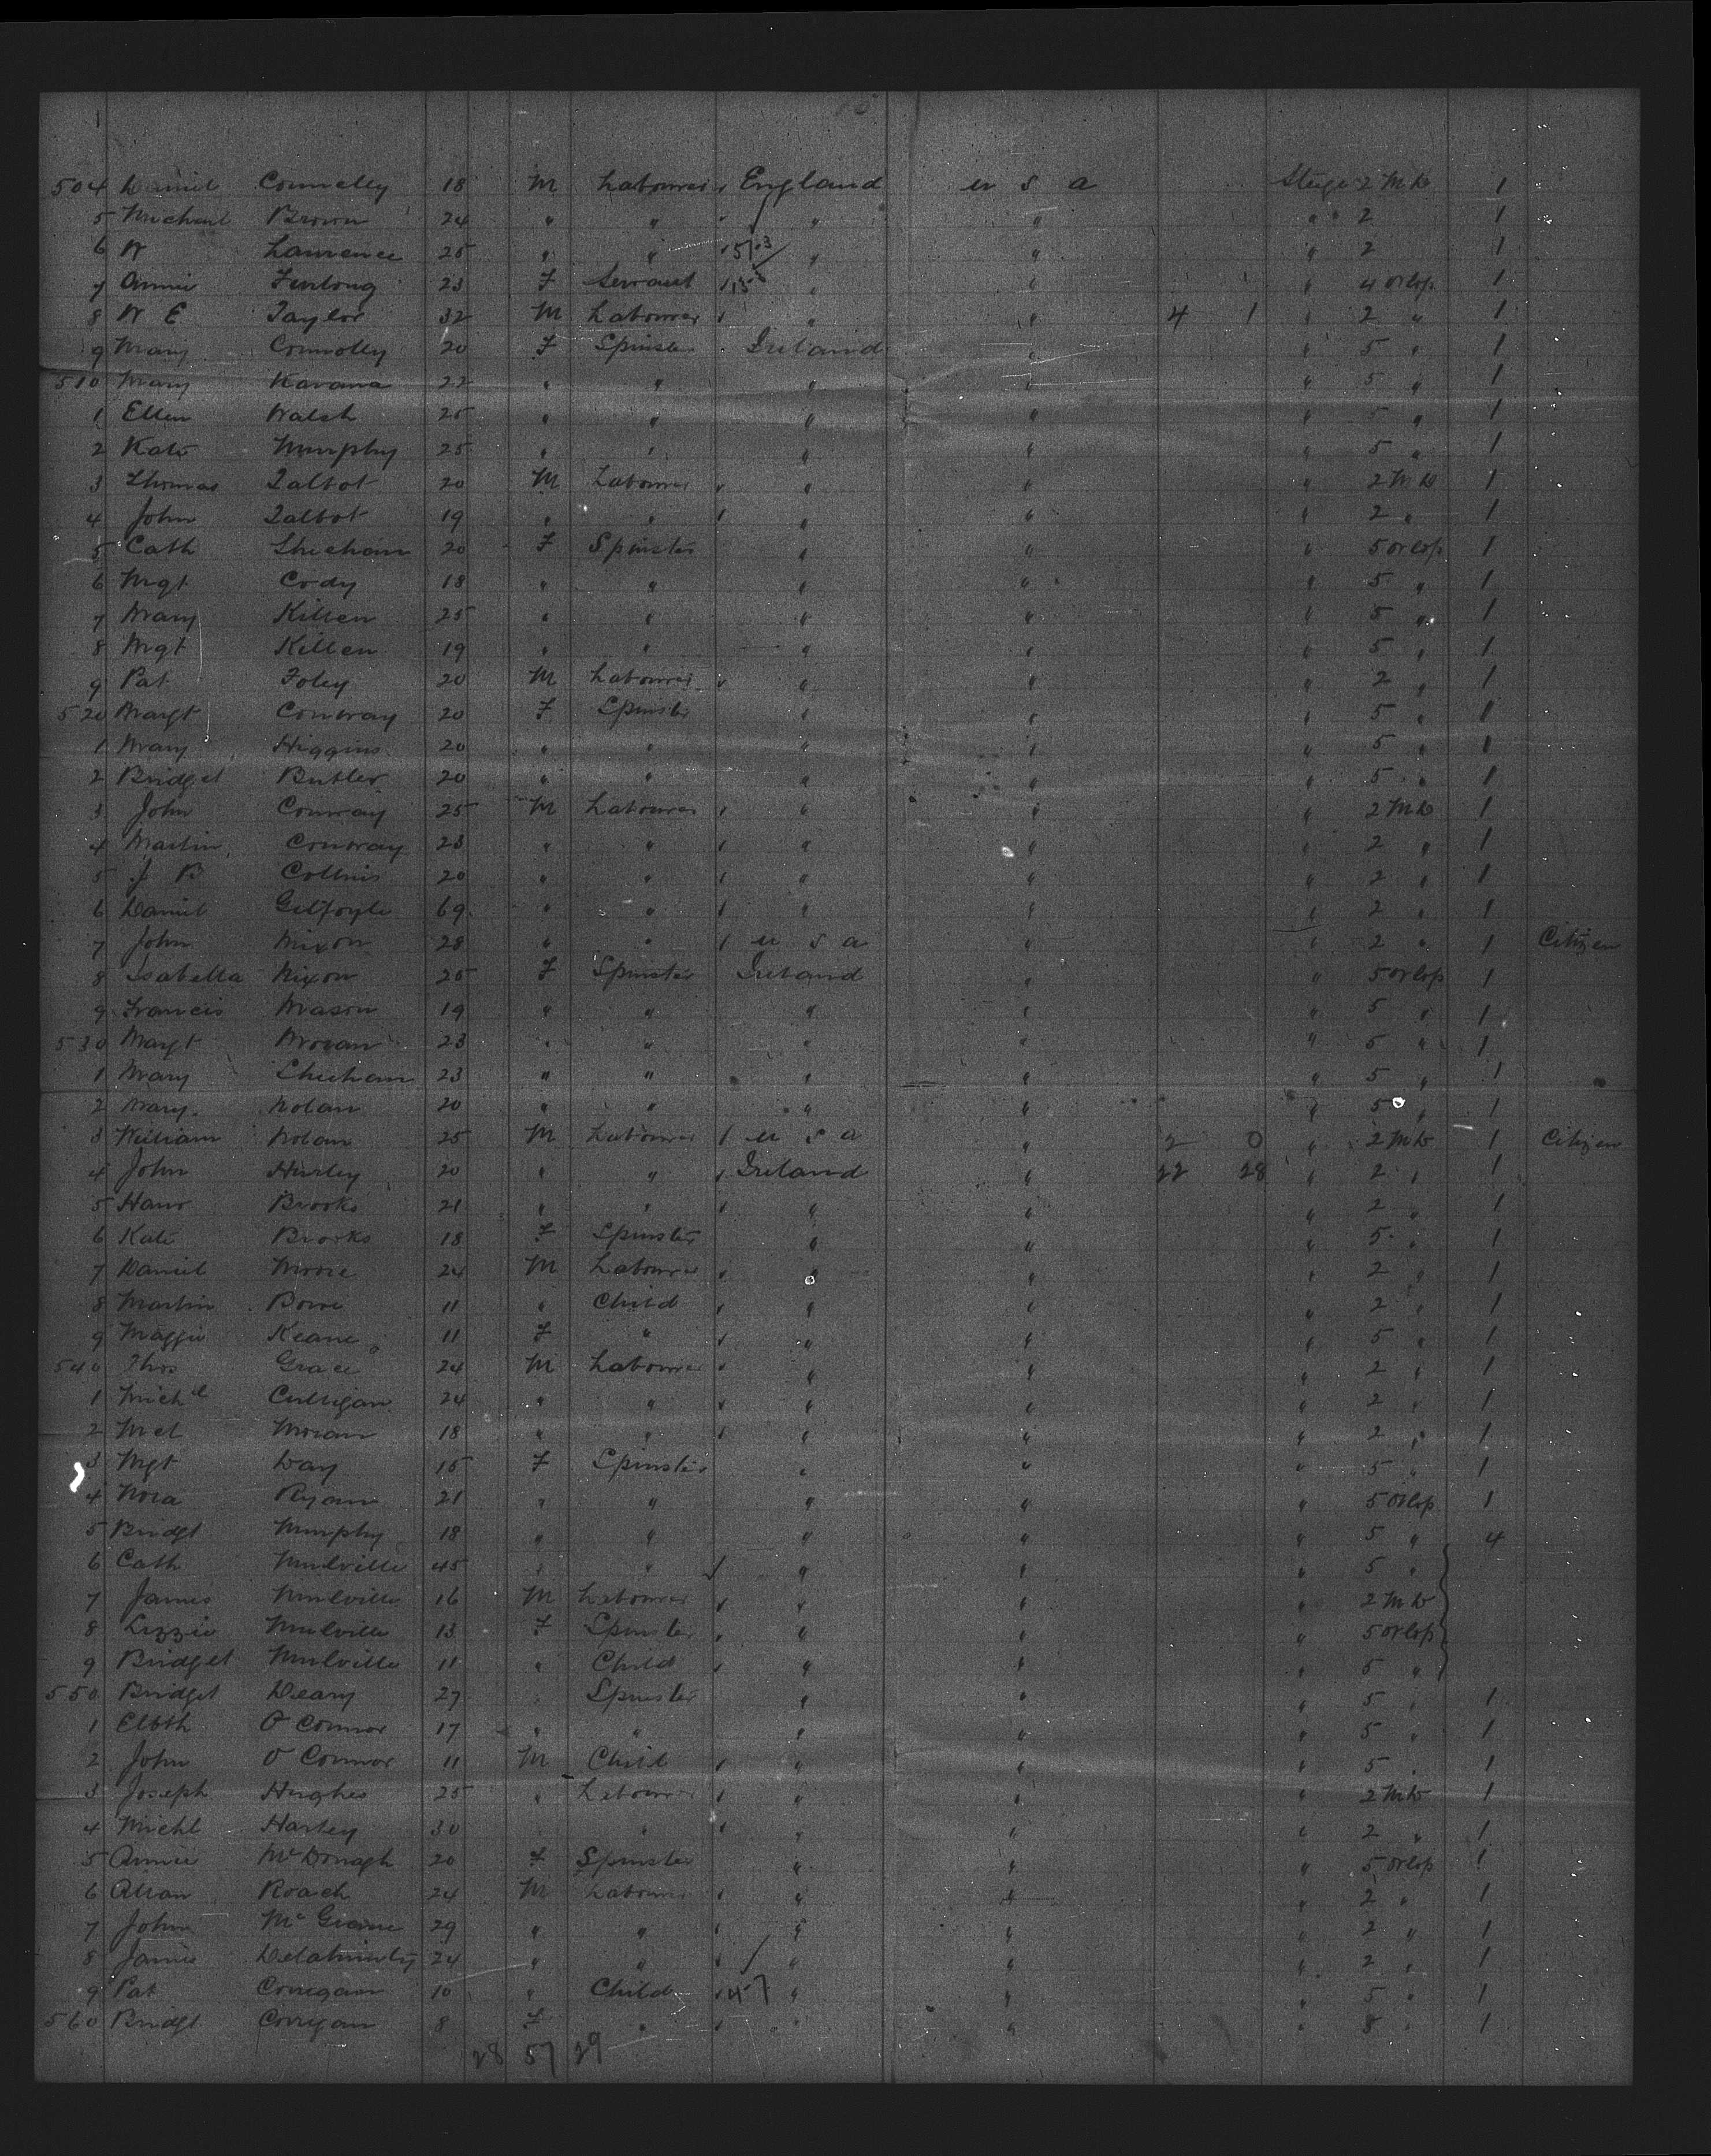 504 Daniel Connelly 18 M Labourer England U S A Steage 2 M D 1
5 Michael Brown 24 " " " " " 2 1
6 W Lawrence 25 " " " " " 2 1
7 Annie Furlong 23 F Servant " " " 4 Orlop 1
8 W E Taylor 32 M Labourer " " 4 1 " 2 " 1
9 Mary Connolly 20 F Spinster Ireland " " 5 " 1
510 Mary Kavana 22 " " " " " 5 " 1
1 Ellen Walsh 25 " " " " " 5 " 1
2 Kate Murphy 25 " " " " " 5 " 1
3 Thomas Talbot 20 M Labourer " " " 2 M D 1
4 John Talbot 19 " " " " " 2 " 1
5 Cath Sheehan 20 F Spinster " " " 5 Orlop 1
6 Mgt Cody 18 " " " " " 5 " 1
7 Mary Killen 25 " " " " " 5 " 1
8 Mgt Killen 19 " " " " " 5 " 1
9 Pat Foley 20 M Labourer " " " 2 " 1
520 Margt Conway 20 F Spinster " " " 5 " 1
1 Mary Higgins 20 " " " " " 5 " 1
2 Bridget Butler 20 " " " " " 5 " 1
3 John Conway 25 M Labourer " " " 2 M D 1
4 Martin Conway 23 " " " " " 2 " 1
5 J B Collins 20 " " " " " 2 " 1
6 Daniel Gilfoyle 69 " " " " " 2 " 1
7 John Nixon 28 " " U S A " " 2 " 1 Citizen
8 Isabella Nixon 25 F Spinster Ireland " " 5 Orlop 1
9 Francis Mason 19 " " " " " 5 " 1
530 Margt Moran 23 " " " " " 5 " 1
1 Mary Sheehan 23 " " " " " 5 " 1
2 Mary Nolan 20 " " " " " 5 " 1
3 William Nolan 25 M Labourer U S A " 2 0 " 2 M D 1 Citizen
4 John Hurley 20 " " Ireland " 22 28 " 2 " 1
5 Hanr Brooks 21 " " " " " 2 " 1
6 Kate Brooks 18 F Spinster " " " 5 " 1
7 Daniel Moore 24 M Labourer " " " 2 " 1
8 Martin Bowe 11 " Child " " " 2 " 1
9 Maggie Keane 11 F " " " " 5 " 1
540 Thos Grace 24 M Labourer " " " 2 " 1
1 Michl Culligan 24 " " " " " 2 " 1
2 Mcl Moran 18 " " " " " 2 " 1
3 Mgt Day 15 F Spinster " " " 5 " 1
4 Nora Ryan 21 " " " " " 5 Orlop 1
5 Bridgt Murphy 18 " " " " " 5 " 4
6 Cath Mulville 45 " " " " " 5 "
7 James Mulville 16 M Labourer " " " 2 M D
8 Lizzie Mulville 13 F Spinster " " " 5 Orlop
9 Bridget Mulville 11 " Child " " " 5 "
550 Bridget Deary 27 Spinster " " " 5 " 1
1 Elbth O Connor 17 " " " " " 5 " 1
2 John O Connor 11 M Child " " " 5 " 1
3 Joseph Hughes 25 " Labourer " " " 2 M D 1
4 Michl Hartey 30 " " " " 2 " 1
5 Annie McDonagh 20 F Spinster " " " 5 Orlop 1
6 Allan Roach 24 M Labourer " " " 2 " 1
7 John Mc Grane 29 " " " " " 2 " 1
8 James Delahunty 24 " " " " " 2 " 1
9 Pat Corrigan 10 " Child " " " 5 " 1
560 Bridgt Corrigan 8 F " " " " 8 " 1
28 57 29